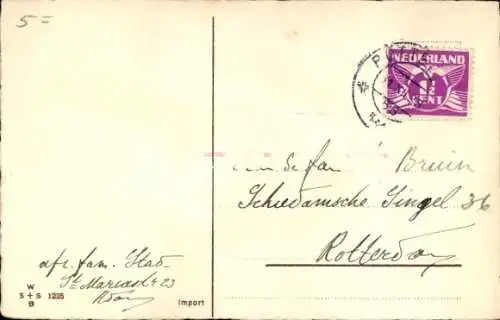 5=
NEDERLAND
1½
CENT
Bruin
Schiedamsche Singel 36
Rotterdam
afz. fam. Stad
St Mariastr 23
Rdam
W
S + S 1225
B
Import